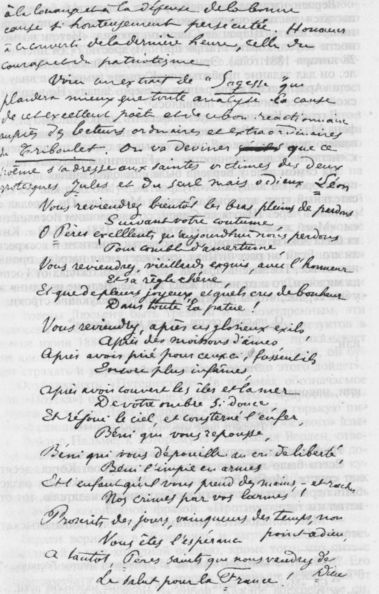 à la louange et à la défense de la bonne
cause si honteusement persécutée. Honneur
à ce converti de la dernière heure, celle du
courage et du patriotisme.
Voici un extrait de "Sagesse" qui
plaidera mieux que toute analyse la cause
de cet excellent poète et de ce bon réactionnaire
auprès des lecteurs ordinaires et extraordinaires
du Triboulet. On va deviner que ce
poème s'adresse aux saintes victimes des deux
grotesques Jules et du seul mais odieux Léon
Vous reviendrez bientôt les bras pleins de pardons
Suivant votre coutume
O Pères excellents qu'aujourd'hui nous perdons
Pour comble d'amertume
Vous reviendrez, vieillards exquis, avec l'honneur
Et sa règle chérie
Et que de pleurs joyeux et quels cris de bonheur
Dans toute la patrie!
Vous reviendrez, après ces glorieux exils
Après des moissons d'âmes
Après avoir prié pour ceux-ci, fussent-ils
Encore plus infâmes
Après avoir couvert les îles et la mer
De votre ombre si douce
Et réjoui le ciel, et consterné l'enfer,
Béni qui vous repousse,
Béni qui vous dépouille au cri de liberté
Béni l'impie en armes
Et l'enfant qu'il vous prend des mains - et
Nos crimes par vos larmes!
Proscrits des jours, vainqueurs des temps, non
point adieu,
Vous êtes l'espérance
A tantôt, Pères saints qui nous vaudrez de
Dieu
Le salut pour la France!